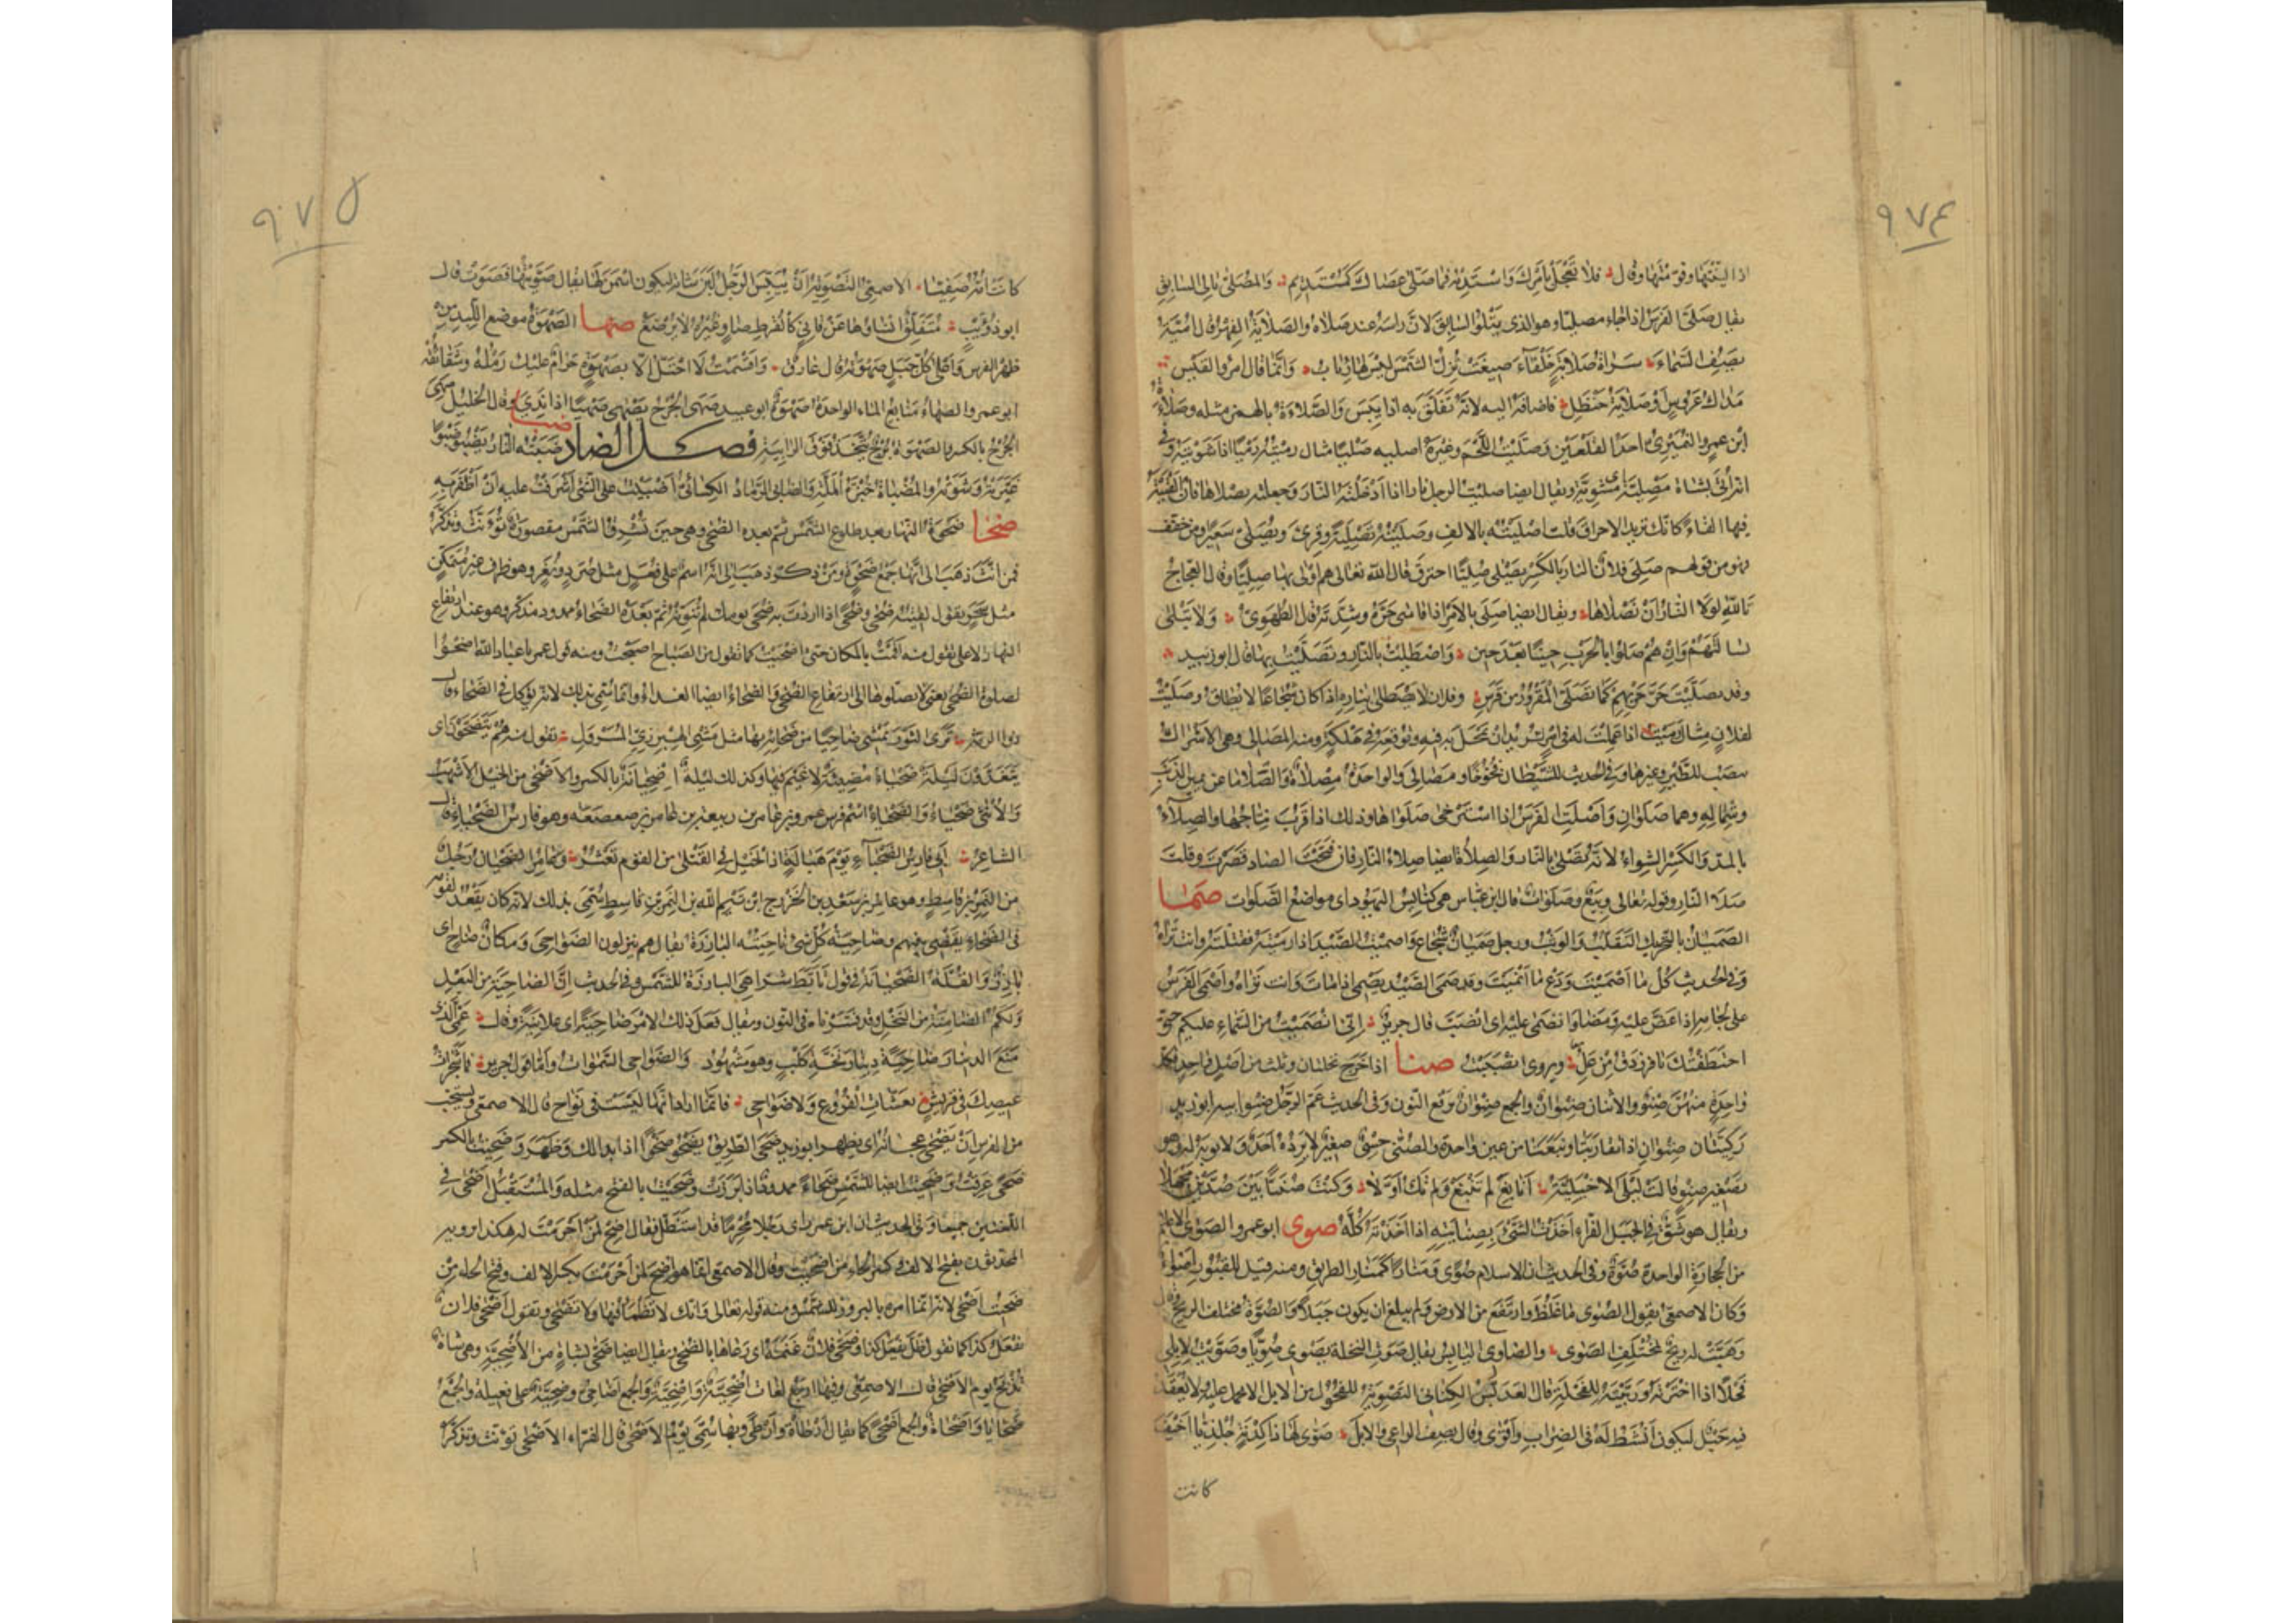 ٩٧٤
اذا لينتها وقومتها وقال فلا تعجل بامرك واستدمه فما صلى عصاك كمستديم والمصلى تالى السابق
يقال صلى الفرس اذا جاء مصليا وهو الذى يتلو السابق لان راسه عند صلاه والصلاية الفهر قال امية
يصف السماء سراة صلاية خلقاء صيغت تزل الشمس ليس لها اياب وانما قال امرؤ القيس
مداك عروس او صلاية حنظل فاضافه اليه لانه تفلق به اذا يبس والصلاءة بالهمز مثله وصلاءة
ابن عمرو النميرى احد القلعين وصليت اللحم وغيره اصليه صليا مثال رميته رميا اذا شويته وفى
انه اتى بشاة مصلية اى مشوية ويقال ايضا صليت الرجل نارا اذا ادخلته النار وجعلته يصلاها فان القيته
فيها القاء كانك تريد الاحراق قلت اصليته بالالف وصليته تصلية وقرئ ويصلى سعيرا ومن خفف
فهو من قولهم صلى فلان النار بالكسر يصلى صليا احترق قال الله تعالى هم اولى بها صليا وقال العجاج
تالله لولا النار ان نصلاها ويقال ايضا صلى بالامر اذا قاسى حره وشدته قال الطهوى ولا تبلى
بسالتهم وان هم صلوا بالحرب حينا بعد حين واصطليت بالنار وتصليت بها قال ابو زبيد
وقد تصليت حر حربهم كما تصلى المقرور من قرس وفلان لا يصطلى بناره اذا كان شجاعا لا يطاق وصليت
لفلان مثال رميت اذا عملت له فى امر تريد ان تمحل به فيه وتوقعه فى هلكة ومنه المصالى وهى الاشراك
تنصب للطير وغيرها وفى الحديث ان للشيطان فخوخا ومصالى والواحدة مصلاة والصلا ما عن يمين الذنب
وشماله وهما صلوان واصلت الفرس اذا استرخى صلواها وذلك اذا قرب نتاجها والصلاء
بالمد والكسر الشواء لانه يصلى بالنار والصلاء ايضا صلاء النار فان فتحت الصاد قصرت وقلت
صلا النار وقوله تعالى وبيع وصلوات قال ابن عباس هى كنائس اليهود اى مواضع الصلوات صما
الصميان بالتحريك التقلب والوثب ورجل صميان شجاع واصميت الصيد اذا رميته فقتلته وانت تراه
وفى الحديث كل ما اصميت ودع ما انميت وقد صمى الصيد يصمى اذا مات وانت تراه واصمى الفرس
على لجامه اذا عض عليه ومضى وانصمى عليه اى انصب قال جرير انى انصميت من السماء عليكم حتى
اختطفتك يا فرزدق من عل ويروى انصببت صنا اذا خرج نخلتان وثلث من اصل واحد فكل
واحدة منهن صنو والاثنان صنوان والجمع صنوان برفع النون وفى الحديث عم الرجل صنو ابيه ابو زيد
ركيتان صنوان اذا تقاربتا ونبعتا من عين واحدة والصنى حسى صغير لا يرده احد ولا يوبه له وهو
تصغير صنو قالت ليلى الاخيلية انابغ لم تنبغ ولم تك اولا وكنت صنيا بين صدين مجهلا
ويقال هو شق فى الجبل الفراء اخذت الشئ بصنايته اذا اخذته كله صوى ابو عمرو الصوى الاعلام
من الحجارة الواحدة صوة وفى الحديث ان للاسلام صوى ومنارا كمنار الطريق ومنه قيل للقبور اصواء
وكان الاصمعى يقول الصوى ما غلظ وارتفع من الارض ولم يبلغ ان يكون جبلا والصوة مختلف الريح قال
وهبت له ريح بمختلف الصوى والصاوى اليابس يقال صوت النخلة تصوى صويا وصويت لابلى
فحلا اذا اخترته وربيته للفحلة قال العدبس الكنانى التصوية للفحول من الابل الا يحمل عليه ولا يعقد
فيه حبل ليكون انشط له فى الضراب واقوى وقال يصف الراعى والابل صوى لها ذا كدنة جلذيا اخيف
كانت
٩٧٥
كانت امه صفيا الاصمعى التصوية ان ييبس الرجل لبن شاته ليكون اسمن لها يقال صويتها فصوت قال
ابو ذويب متفلق انساؤها عن قانئ كالقرط صاو غبره لا يرضع صها الصهوة موضع اللبد من
ظهر الفرس واعلى كل جبل صهوته قال عارق واقسمت لا احتل الا بصهوة حرام عليك رمله وشقائقه
ابو عمرو الصهاء منابع الماء الواحدة صهوة ابو عبيد صهى الجرح يصهى صهيا اذا ندى وقال الخليل صهى
الجرح بالكسر والصهوة برج يتخذ فوق الرابية فصل الضاد ضبا ضبته النار تضبوه ضبوا
غيرته وشوته والمضباة خبزة الملة والضابى الرماد الكسائى اضبيت على الشئ اشرفت عليه ان اظفر به
ضحا ضحوة النهار بعد طلوع الشمس ثم بعده الضحى وهى حين تشرق الشمس مقصورة تؤنث وتذكر
فمن انث ذهب الى انها جمع ضحوة ومن ذكر ذهب الى انه اسم على فعل مثل صرد ونغر وهو ظرف غير متمكن
مثل سحر تقول لقيته ضحى وضحى اذا اردت به ضحى يومك لم تنونه ثم بعده الضحاء ممدود مذكر وهو عند ارتفاع
النهار الاعلى تقول منه اقمت بالمكان حتى اضحيت كما تقول من الصباح اصبحت ومنه قول عمر يا عباد الله اضحوا
لصلوة الضحى يعنى لا تصلوها الى ارتفاع الضحى والضحاء ايضا الغداء وانما سمى بذلك لانه يؤكل فى الضحاء قال
ذو الرمة ترى الثور يمشى ضاحيا من ضحائه بها مثل مشى الهبرزى المسرول تقول منه هم يتضحون اى
يتغدون ليلة ضحياء مضيئة لا غيم فيها وكذلك ليلة اضحيانة بالكسر والاضحى من الخيل الاشهب
والانثى ضحياء والضحياء اسم فرس عمرو بن عامر بن ربيعة بن عامر بن صعصعة وهو فارس الضحياء قال
الشاعر ابى فارس الضحياء يوم هبالة اذ الخيل فى القتلى من القوم تعثر وعامر الضحيان رجل
من النمر بن قاسط وهو عامر بن سعد بن الخزرج ابن تيم الله بن النمر بن قاسط سمى بذلك لانه كان يقعد لقومه
فى الضحاء يقضى بينهم وضاحية كل شئ ناحيته البارزة يقال هم ينزلون الضواحى ومكان ضاح اى
بارز والقلة الضحيانة فى قول تابط شرا هى البارزة للشمس وفى الحديث ان لنا الضاحية من البعل
ولكم الضامنة من النخل وقد فسرناه فى النون ويقال فعل ذلك الامر ضاحية اى علانية وقال عمى الذى
منع الدينار ضاحية دينار نخة كلب وهو مشهود والضواحى السموات واما قول جرير فما شجرات
عيصك فى قريش بعشات الفروع ولا ضواحى فانما اراد انها ليست فى نواح قال الاصمعى ويستحب
من الفرس ان يضحى عجانه اى يظهر ابو زيد ضحى الطريق يضحو ضحوا اذا بدا لك وظهر وضحيت بالكسر
ضحى عرقت وضحيت ايضا للشمس ضحاء ممدود اذا برزت وضحيت بالفتح مثله والمستقبل اضحى فى
اللغتين جميعا وفى الحديث ان ابن عمر راى رجلا محرما قد استظل فقال اضح لمن احرمت له هكذا يرويه
المحدثون بفتح الالف وكسر الحاء من اضحيت وقال الاصمعى انما هو اضح لمن احرمت بكسر الالف وفتح الحاء من
ضحيت اضحى لانه انما امره بالبروز للشمس ومنه قوله تعالى وانك لا تظمأ فيها ولا تضحى وتقول اضحى فلان
يفعل كذا كما تقول ظل يفعل كذا وضحى فلان غنمه اى رعاها بالضحى ويقال ايضا ضحى بشاة من الاضحية وهى شاة
تذبح يوم الاضحى قال الاصمعى وفيها اربع لغات اضحية واضحية والجمع اضاحى وضحية على فعيلة والجمع
ضحايا واضحاة والجمع اضحى كما يقال ارطاة وارطى وبها سمى يوم الاضحى قال الفراء الاضحى تؤنث وتذكر